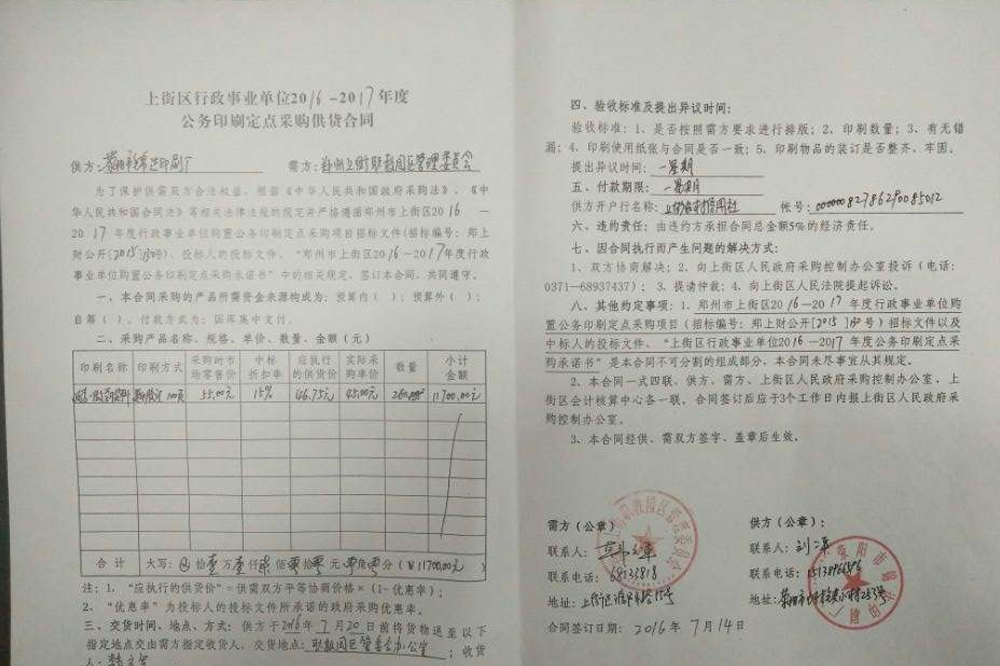 上街区行政事业单位2016-2017年度
公务印刷定点采购供货合同
供方: 印刷厂 需方: 郑州上街职教园区管理委员会
为了保护供需双方合法权益,根据《中华人民共和国政府采购法》、《中
华人民共和国合同法》等相关法律法规的规定并严格遵循郑州市上街区2016—
2017年度行政事业单位购置公务印刷定点采购项目招标文件(招标编号:郑上
财公开[2015]130号)、投标人的投标文件、"郑州市上街区2016-2017年度行政
事业单位购置公务印刷定点采购承诺书"中的相关规定,签订本合同,共同遵守。
一、本合同采购的产品所需资金来源构成为:预算内( );预算外( );
自筹( )。付款方式为:国库集中支付。
二、采购产品名称、规格、单价、数量、金额(元)
印刷名称 印刷方式 采购时市场零售价 中标折扣率 应执行的供货价 实际采购单价 数量 小计金额
55.00元 15% 46.75元 45.00元 260 11700.00元
合计 大写: 拾壹万壹仟柒佰零拾零元零角零分(¥11700.00元)
注:1、"应执行的供货价"=供需双方平等协商价格×(1-优惠率);
2、"优惠率"为投标人的投标文件所承诺的政府采购优惠率。
三、交货时间、地点、方式:供方于2016年7月20日前将货物送至以下
指定地点交由需方指定收货人,交货地点:职教园区管委会办公室;收货
人:
四、验收标准及提出异议时间:
验收标准:1、是否按照需方要求进行排版;2、印刷数量;3、有无错
漏;4、印刷使用纸张与合同是否一致;5、印刷物品的装订是否整齐、牢固。
提出异议时间:一星期
五、付款期限:一星期
供方开户行名称: 信用社 帐号:0000082786290085012
六、违约责任:由违约方承担合同总金额5%的经济责任。
七、因合同执行而产生问题的解决方式:
1、双方协商解决;2、向上街区人民政府采购控制办公室投诉(电话:
0371—68937437);3、提请仲裁;4、向上街区人民法院提起诉讼。
八、其他约定事项:1、郑州市上街区2016—2017年度行政事业单位购
置公务印刷定点采购项目(招标编号:郑上财公开[2015]130号)招标文件以及
中标人的投标文件、"上街区行政事业单位2016—2017年度公务印刷定点采
购承诺书"是本合同不可分割的组成部分、本合同未尽事宜从其规定。
2、本合同一式四联,供方、需方、上街区人民政府采购控制办公室、上
街区会计核算中心各一联,合同签订后应于3个工作日内报上街区人民政府采
购控制办公室。
3、本合同经供、需双方签字、盖章后生效。
需方(公章) 供方(公章):
联系人: 联系人:刘
联系电话:68133818 联系电话:
地址:上街区 15号 地址:荥阳市 233号
合同签订日期:2016年7月14日